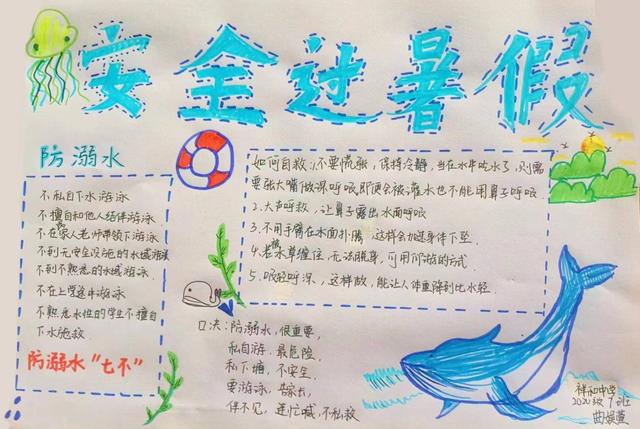 安全过暑假
防溺水
不私自下水游泳
不擅自和他人结伴游泳
不在家人老师带领下游泳
不到无安全设施的水域游泳
不到不熟悉的水域游泳
不在上学途中游泳
不熟悉水性的学生不擅自
下水施救
防溺水“七不”
如何自救:1.不要慌张,保持冷静,当在水中吃水了,只需
要张大嘴做深呼吸,即使会被灌水也不能用鼻子呼吸.
2.大声呼救,让鼻子露出水面呼吸
3.不用手臂在水面扑腾,这样会加速身体下坠
4.若被水草缠住,无法脱身,可用仰泳的方式
5.吸轻呼深,这样做,能让人体重降到比水轻.
口决:防溺水,很重要,
私自游,最危险,
私下塘,不安全.
要游泳,告家长,
伴不见,连忙喊,不私救
祥和中学
2020级7班